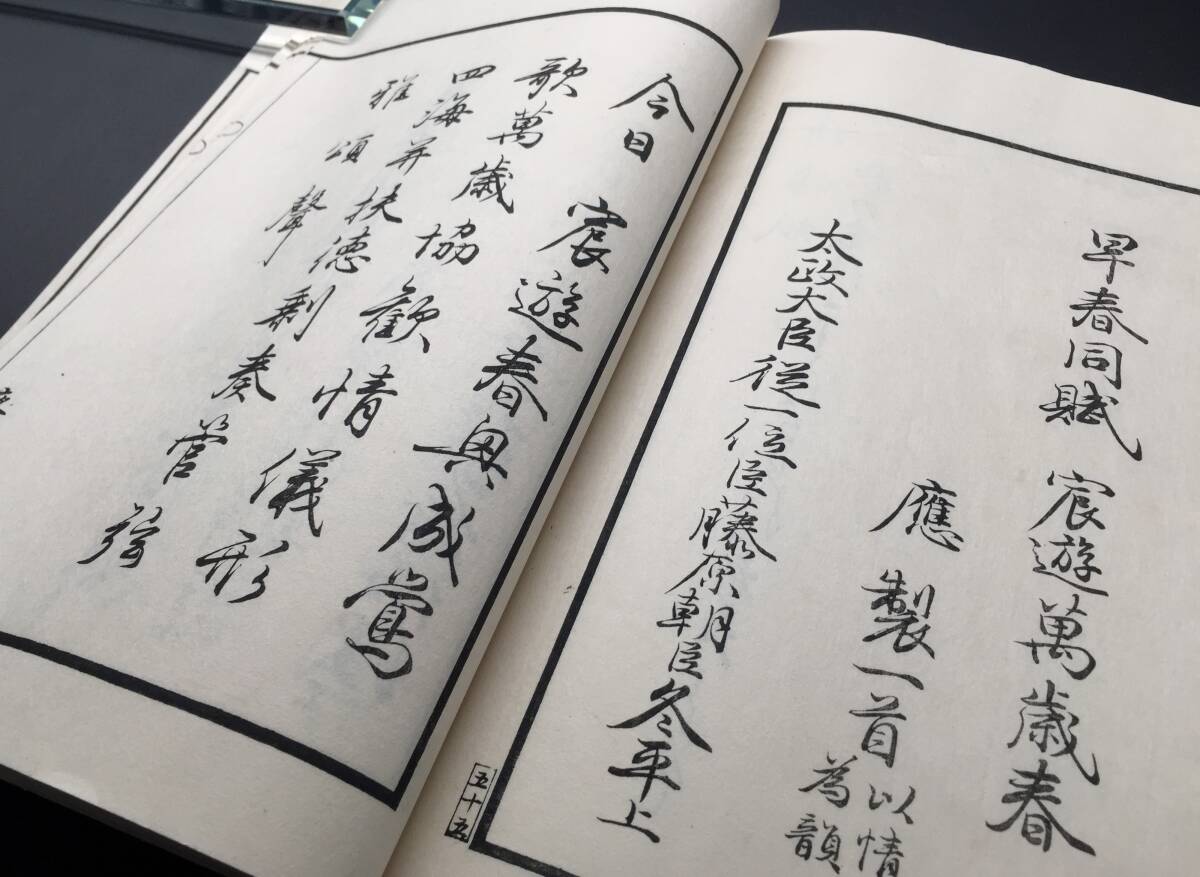 早春同賦 宸遊萬歳春
應 製一首以情
為韻
太政大臣従一位臣藤原朝臣冬平上
五十五
今日 宸遊春興成鶯
歌萬歳協歡情儀形
四海并扶徳剩奏管弦
雅頌聲